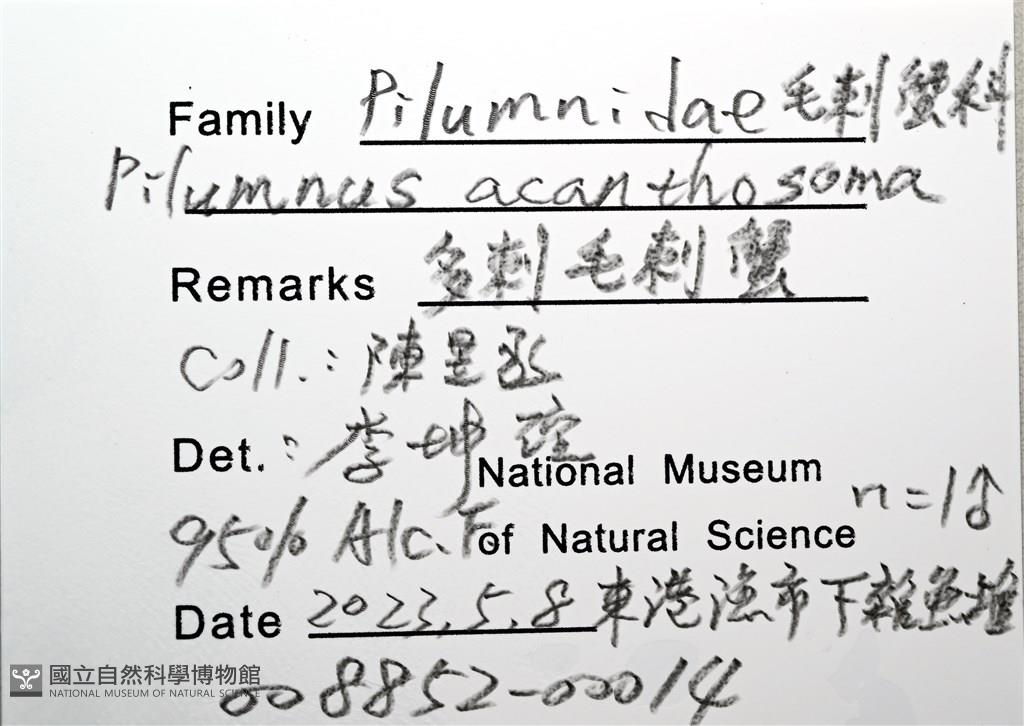 Family Pilumnidae 毛刺蟹科
Pilumnus acanthosoma
Remarks 多刺毛刺蟹
Coll.: 陳昱丞
Det.: 李坤瑄
National Museum
n=1♂
95% Alc. F
of Natural Science
Date 2023.5.8 東港漁市下雜魚堆
國立自然科學博物館
NATIONAL MUSEUM OF NATURAL SCIENCE
008852-00014